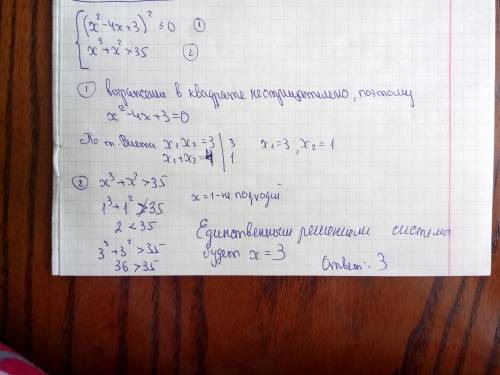 (x²-4x+3)² ≤ 0 ①
x³+x²>35 ②
① выражение в квадрате неотрицательно, поэтому
x²-4x+3=0
По т. Виета x₁x₂=3 | 3 x₁=3, x₂=1
x₁+x₂=4 | 1
② x³+x²>35 x=1-не подходит
1³+1²≯35
2<35
3³+3²>35
36>35
Единственным решением системы
будет x=3
Ответ: 3